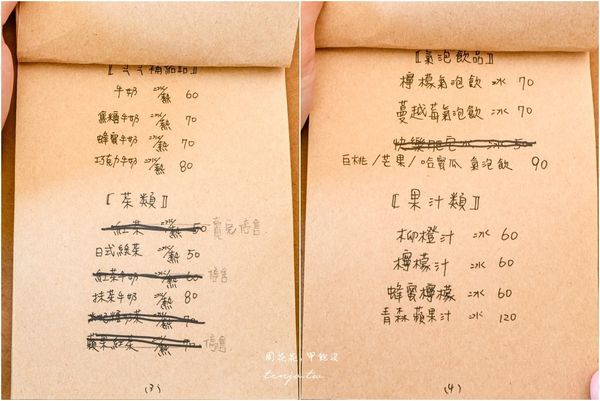 牛奶 冰/熱 60
黑糖牛奶 冰/熱 70
蜂蜜牛奶 冰/熱 70
巧克力牛奶 冰/熱 80
〖茶類〗
紅茶 冰/熱 50 賣完停售
日式綠茶 冰/熱 50
紅茶牛奶 冰/熱 60 停售
抹茶牛奶 冰/熱 80
冰/熱 70
蘋果紅茶 冰/熱 70 停售
(3)
〖氣泡飲品〗
檸檬氣泡飲 冰 70
蔓越莓氣泡飲 冰 70
快樂肥宅水 冰 50
白桃/芒果/哈蜜瓜 氣泡飲 90
〖果汁類〗
柳橙汁 冰 60
檸檬汁 冰 60
蜂蜜檸檬 冰 60
青森蘋果汁 冰 120
(4)
周花花,甲飽沒
tenjo.tw